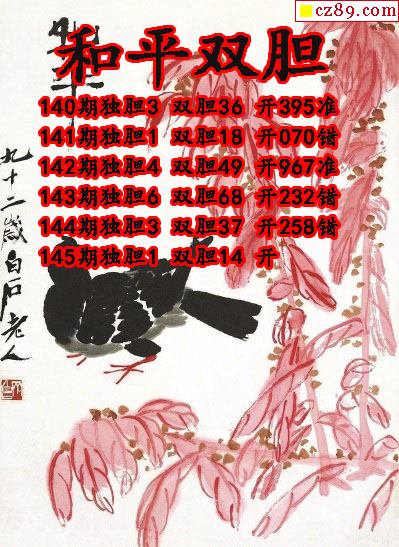 cz89.com
和平双胆
140期独胆3 双胆36 开395准
141期独胆1 双胆18 开070错
142期独胆4 双胆49 开967准
143期独胆6 双胆68 开232错
144期独胆3 双胆37 开258错
145期独胆1 双胆14 开
九十二岁白石老人